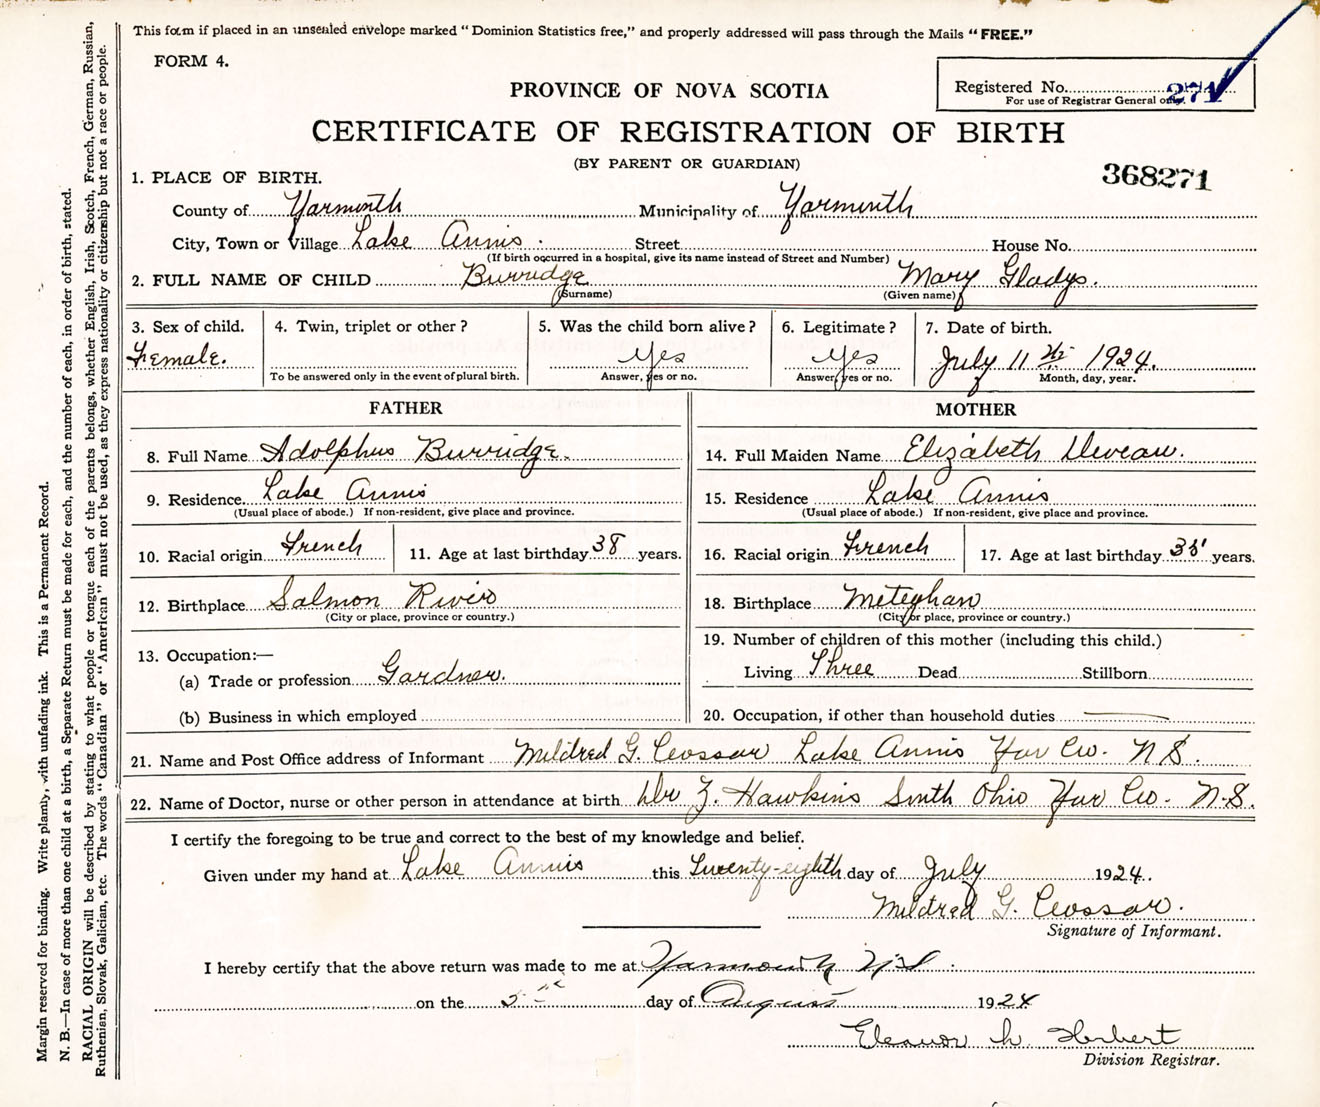 This form if placed in an unsealed envelope marked "Dominion Statistics free," and properly addressed will pass through the Mails "FREE."
FORM 4.
Registered No. 271
For use of Registrar General only.
PROVINCE OF NOVA SCOTIA
CERTIFICATE OF REGISTRATION OF BIRTH
(BY PARENT OR GUARDIAN)
368271
1. PLACE OF BIRTH.
County of Yarmouth Municipality of Yarmouth
City, Town or Village Lake Annis. Street House No.
(If birth occurred in a hospital, give its name instead of Street and Number)
2. FULL NAME OF CHILD Burridge Mary Gladys.
(Surname) (Given name)
3. Sex of child. 4. Twin, triplet or other? 5. Was the child born alive? 6. Legitimate? 7. Date of birth.
Female. Yes Yes July 11th 1924.
To be answered only in the event of plural birth. Answer, yes or no. Answer, yes or no. Month, day, year.
FATHER
8. Full Name Adolphus Burridge.
9. Residence. Lake Annis
(Usual place of abode.) If non-resident, give place and province.
10. Racial origin French 11. Age at last birthday 38 years.
12. Birthplace Salmon River
(City or place, province or country.)
13. Occupation:—
(a) Trade or profession Gardner.
(b) Business in which employed
MOTHER
14. Full Maiden Name Elizabeth Deveau.
15. Residence Lake Annis
(Usual place of abode.) If non-resident, give place and province.
16. Racial origin French 17. Age at last birthday years.
18. Birthplace Meteghan
(City or place, province or country.)
19. Number of children of this mother (including this child.)
Living Three Dead Stillborn
20. Occupation, if other than household duties
21. Name and Post Office address of Informant Mildred G. Crossar Lake Annis Yar Co. N S.
22. Name of Doctor, nurse or other person in attendance at birth Dr Z. Hawkins South Ohio Yar Co. N.S.
I certify the foregoing to be true and correct to the best of my knowledge and belief.
Given under my hand at Lake Annis this Twenty-eighth day of July 1924.
Mildred G. Crossar.
Signature of Informant.
I hereby certify that the above return was made to me at Yarmouth N S.
on the 5th day of August 1924
Eleanor h. Herbert
Division Registrar.
Margin reserved for binding. Write plainly, with unfading ink. This is a Permanent Record.
N. B.—In case of more than one child at a birth, a Separate Return must be made for each, and the number of each, in order of birth, stated.
RACIAL ORIGIN will be described by stating to what people or tongue each of the parents belongs, whether English, Irish, Scotch, French, German, Russian,
Ruthenian, Slovak, Galician, etc. The words "Canadian" or "American" must not be used, as they express nationality or citizenship but not a race or people.